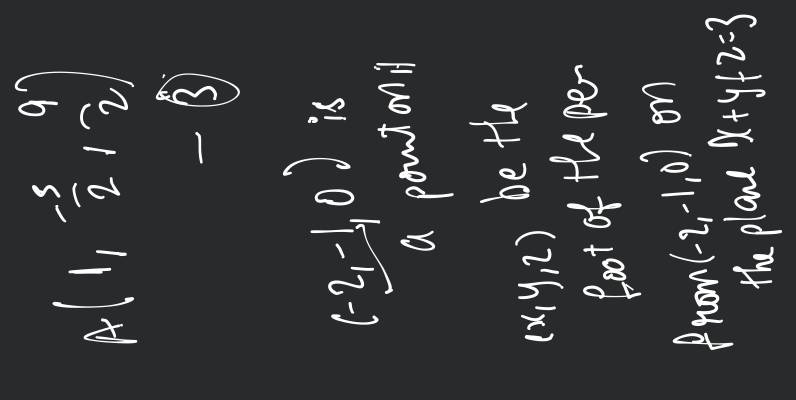 A(1, -5/2, 9/2)
- 3
(-2,-1,0) is
a point on it
(x,y,z) be the
foot of the per
from (-2,-1,0) on
the plane x+y+z=3